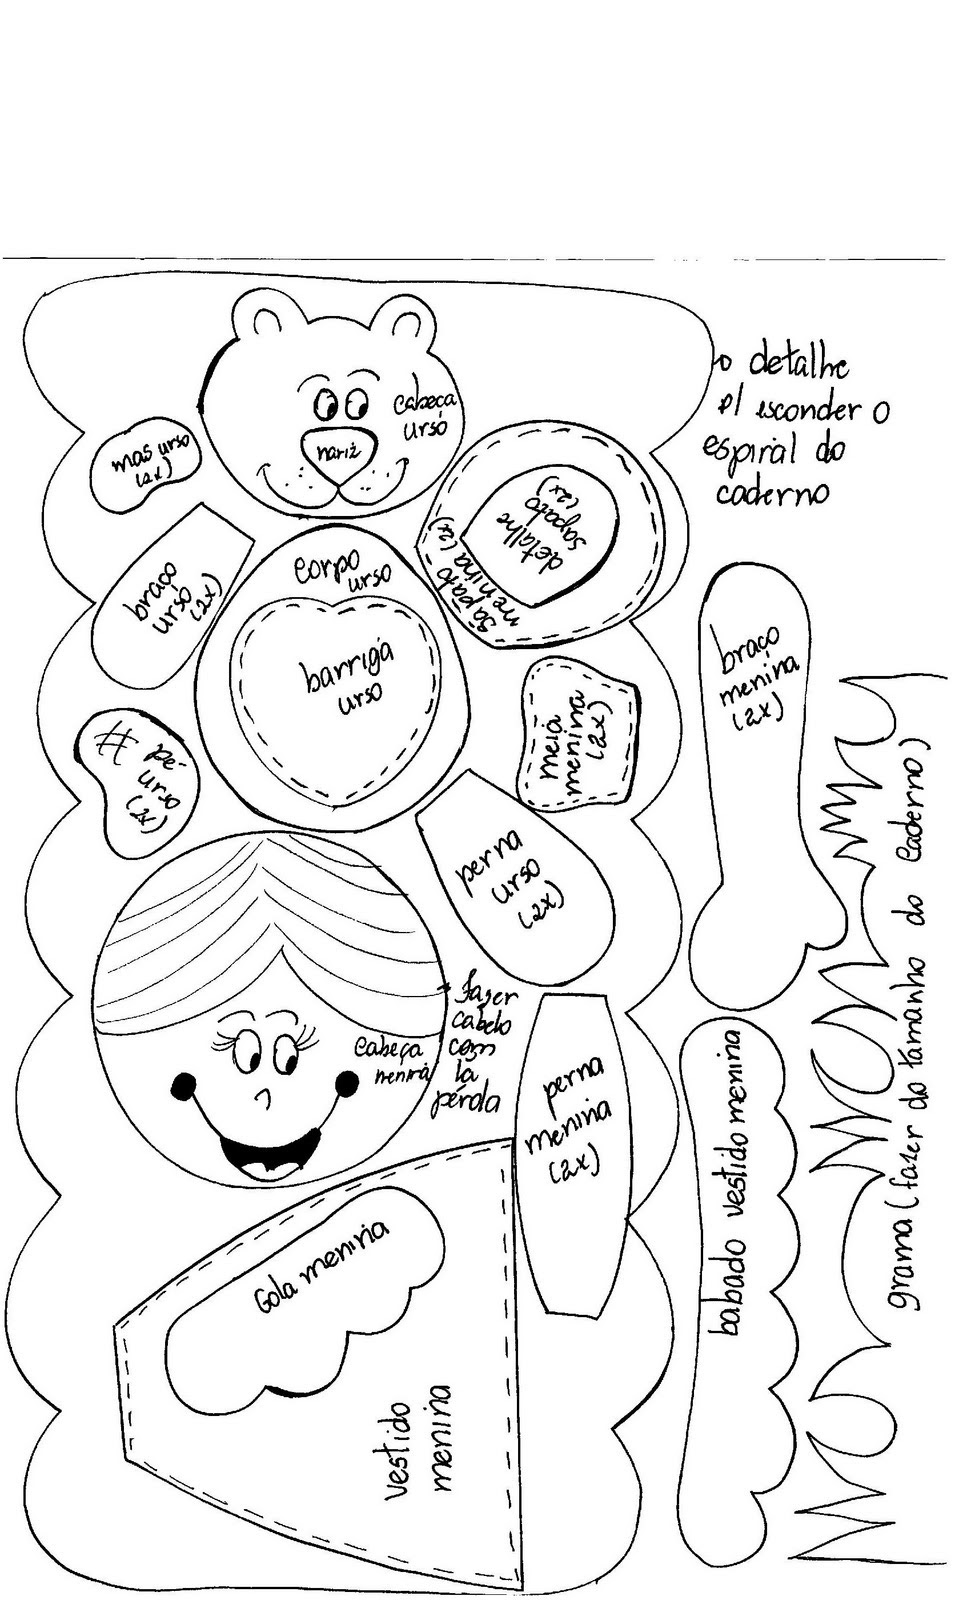 cabeça
urso
nariz
mas urso
(2x)
detalhe
sapato
(2x)
sapato
menina (2x)
o detalhe
pl esconder o
espiral do
caderno
corpo
urso
braço
urso
(2x)
barriga
urso
braço
menina
(2x)
meia
menina
(2x)
# pé
urso
(2x)
perna
urso
(2x)
fazer
cabelo
com
la
pérola
cabeça
menina
perna
menina
(2x)
babado vestido menina
grama (fazer do tamanho do caderno)
Gola menina
vestido
menina